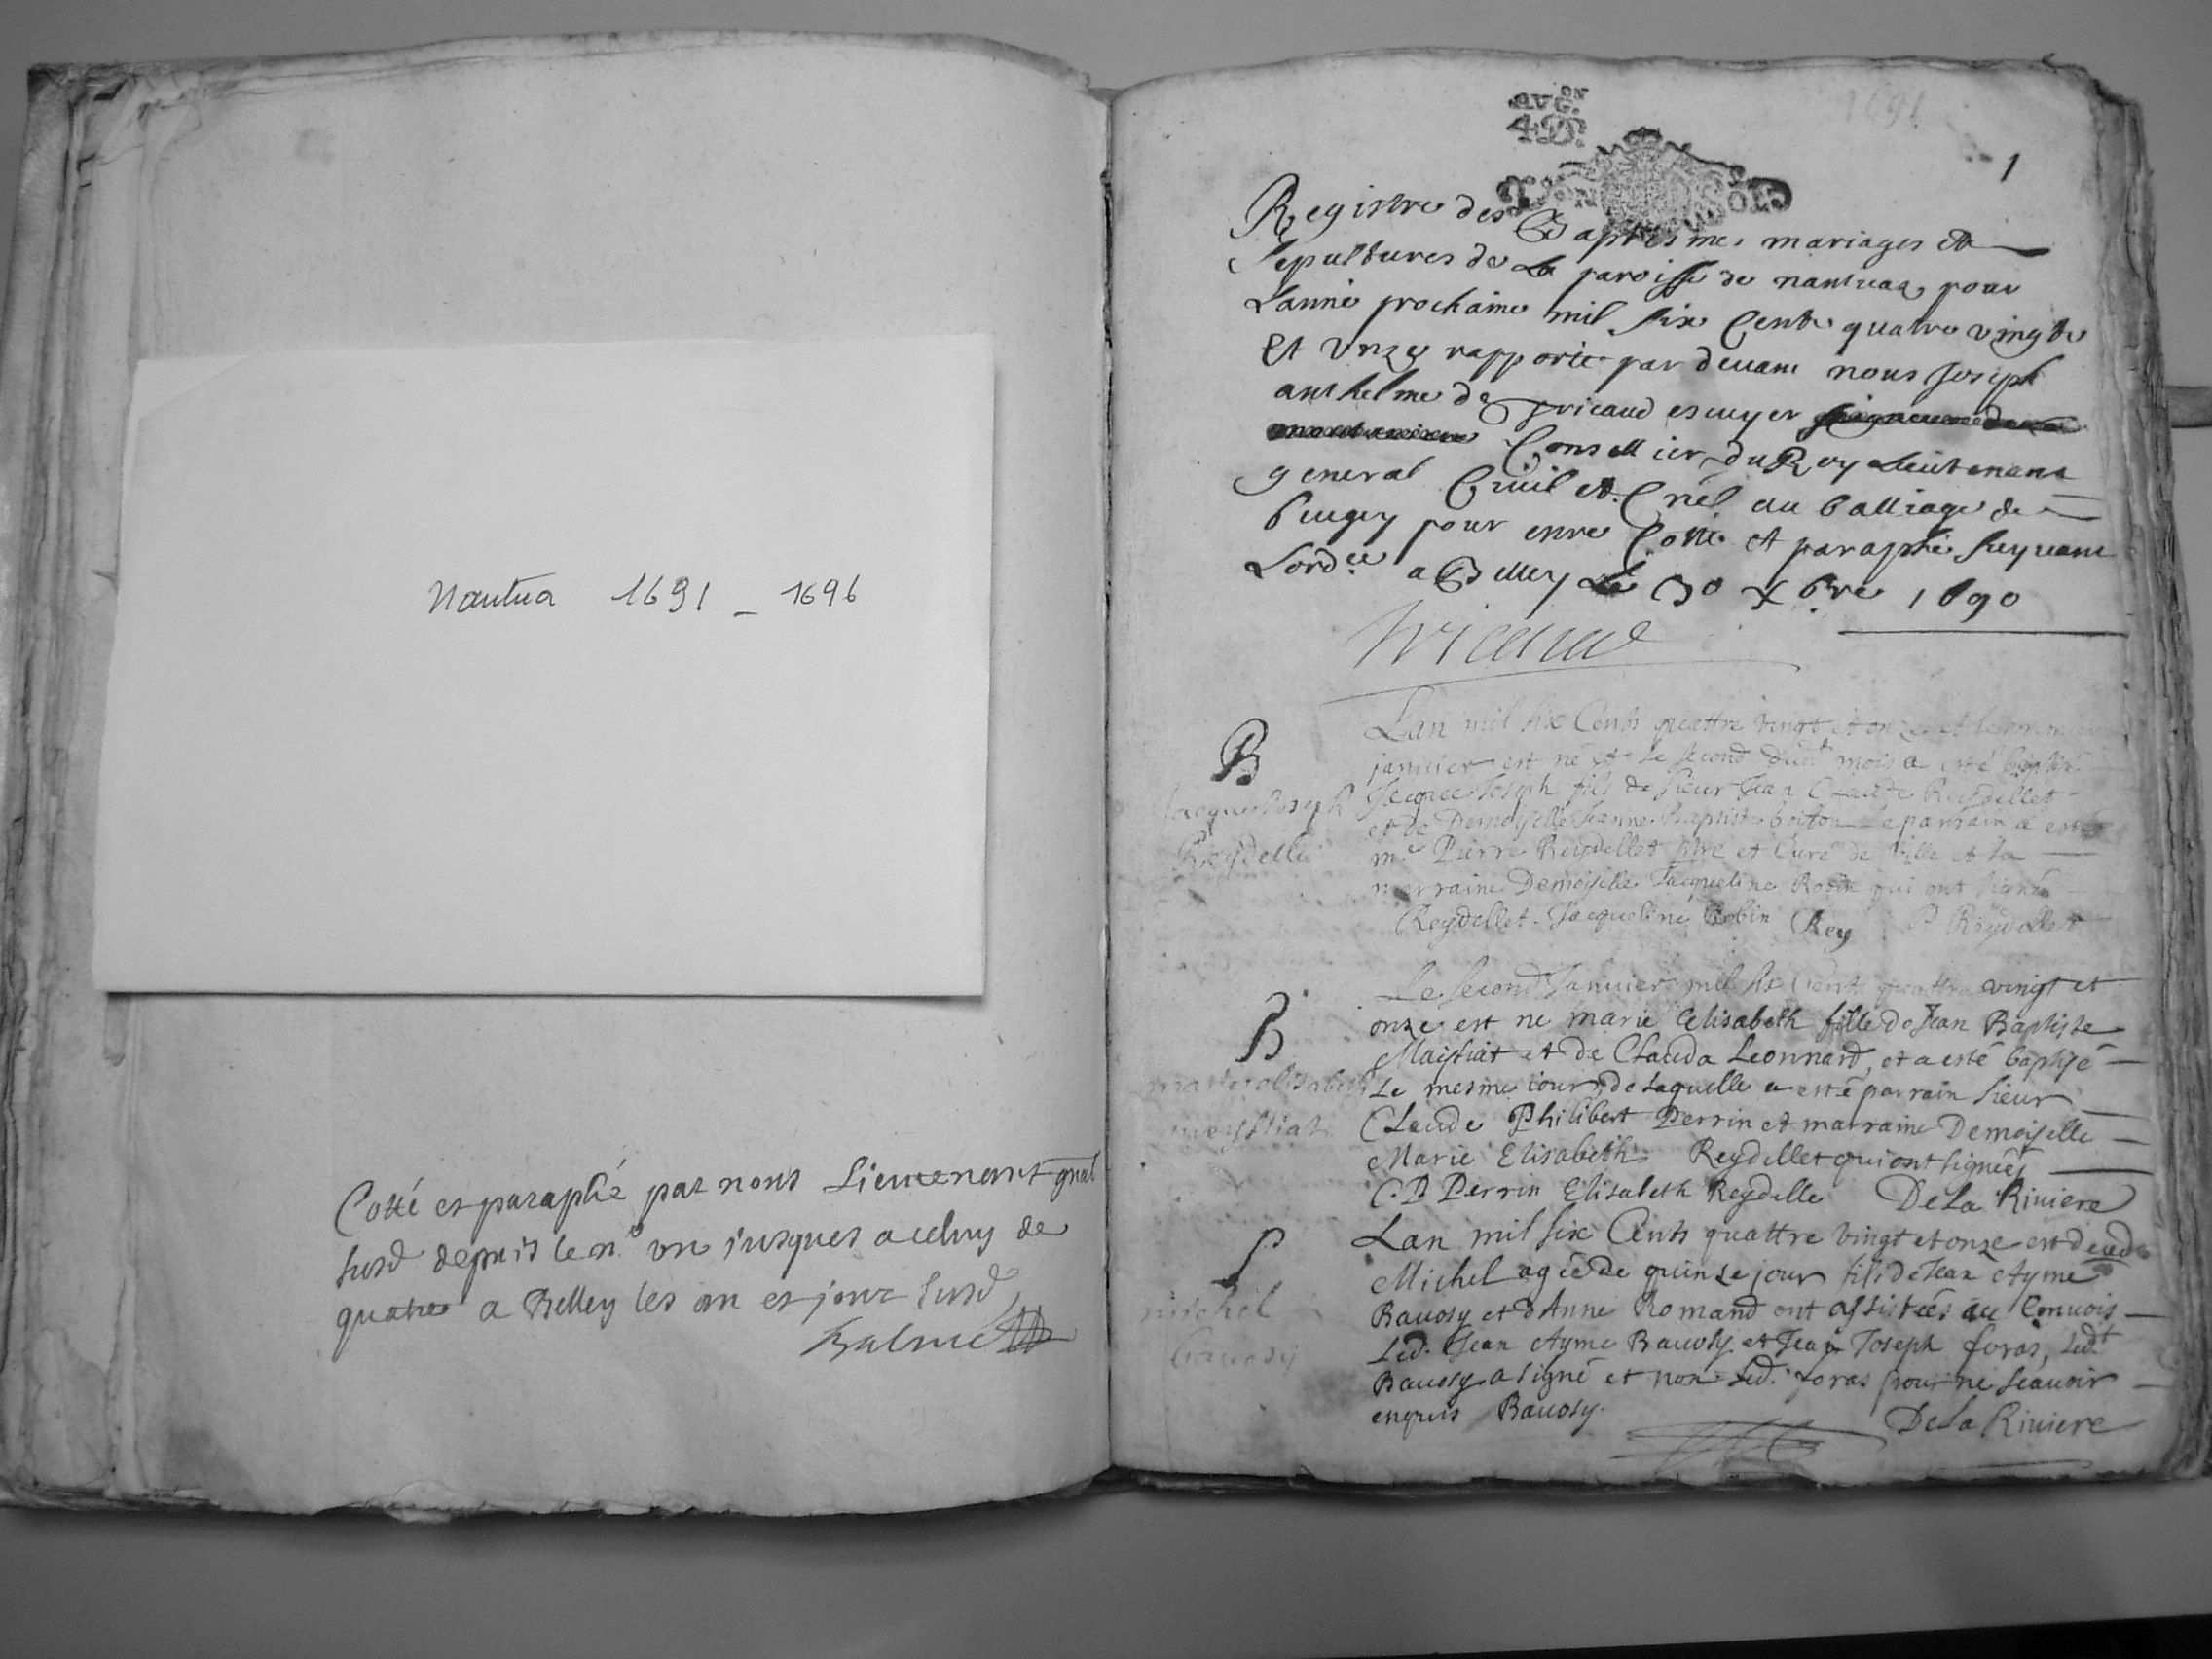 Nantua 1691 _ 1696
Cotté et paraphé par nous Lieutenant gnal
susd depuis le n.o un jusques a celuy de
quatre a Belley les an et jour susd
AVG.ON
4 D.
1691
1
Registre des Baptesmes mariages et
sepultures de La paroisse de nantuaz pour
Lanné prochaine mil six Cents quatre vingts
Et unze rapporté par devant nous Joseph
anthelme de Tricaud escuyer
Conseillier du Roy Lieutenant
general Civil et Criel au balliage de
bugey pour estre Cotté et paraphé suyvant
Lordce a Belley Le 30 Xbre 1690
Tricaud
B
Jacque Joseph
Reydellet
Lan mil six Cents quattre vingt et onze et le
janvier est né et le second dudt mois a esté baptisé
Jacque Joseph fils de sieur Jean Claude Reydellet
et de Demoyselle Jeanne Baptiste le parrain a esté
mre Pierre Reydellet ptre et Curé de Ville et la
marraine Demoiselle Jacqueline Robin qui ont signés
Reydellet. Jacqueline Robin Rey P Reydellet
B
marie elisabeth
Le second Janvier mil six Cents quattre vingt et
onze est ne marie Elisabeth fille de Jean Baptiste
Maissiat et de Clauda Leonnard, et a esté baptisé
Le mesme jour, de laquelle a esté parrain sieur
Claude Philibert Perrin et marraine Demoiselle
Marie Elisabeth Reydellet qui ont signéés
C. P Perrin Elisabeth Reydelle De La Riviere
S
michel
bavosy
Lan mil six Cents quattre vingt et onze est decedé
Michel agée de quinze jour fils de Jean Ayme
Bavosy et d'Anne Romand ont assistées au Convois
Led. Jean Ayme Bavosy et Jean Joseph foras, Ledt
Bavosy a signé et non Led. foras pour ne scavoir
enquis Bavosy.
De La Riviere